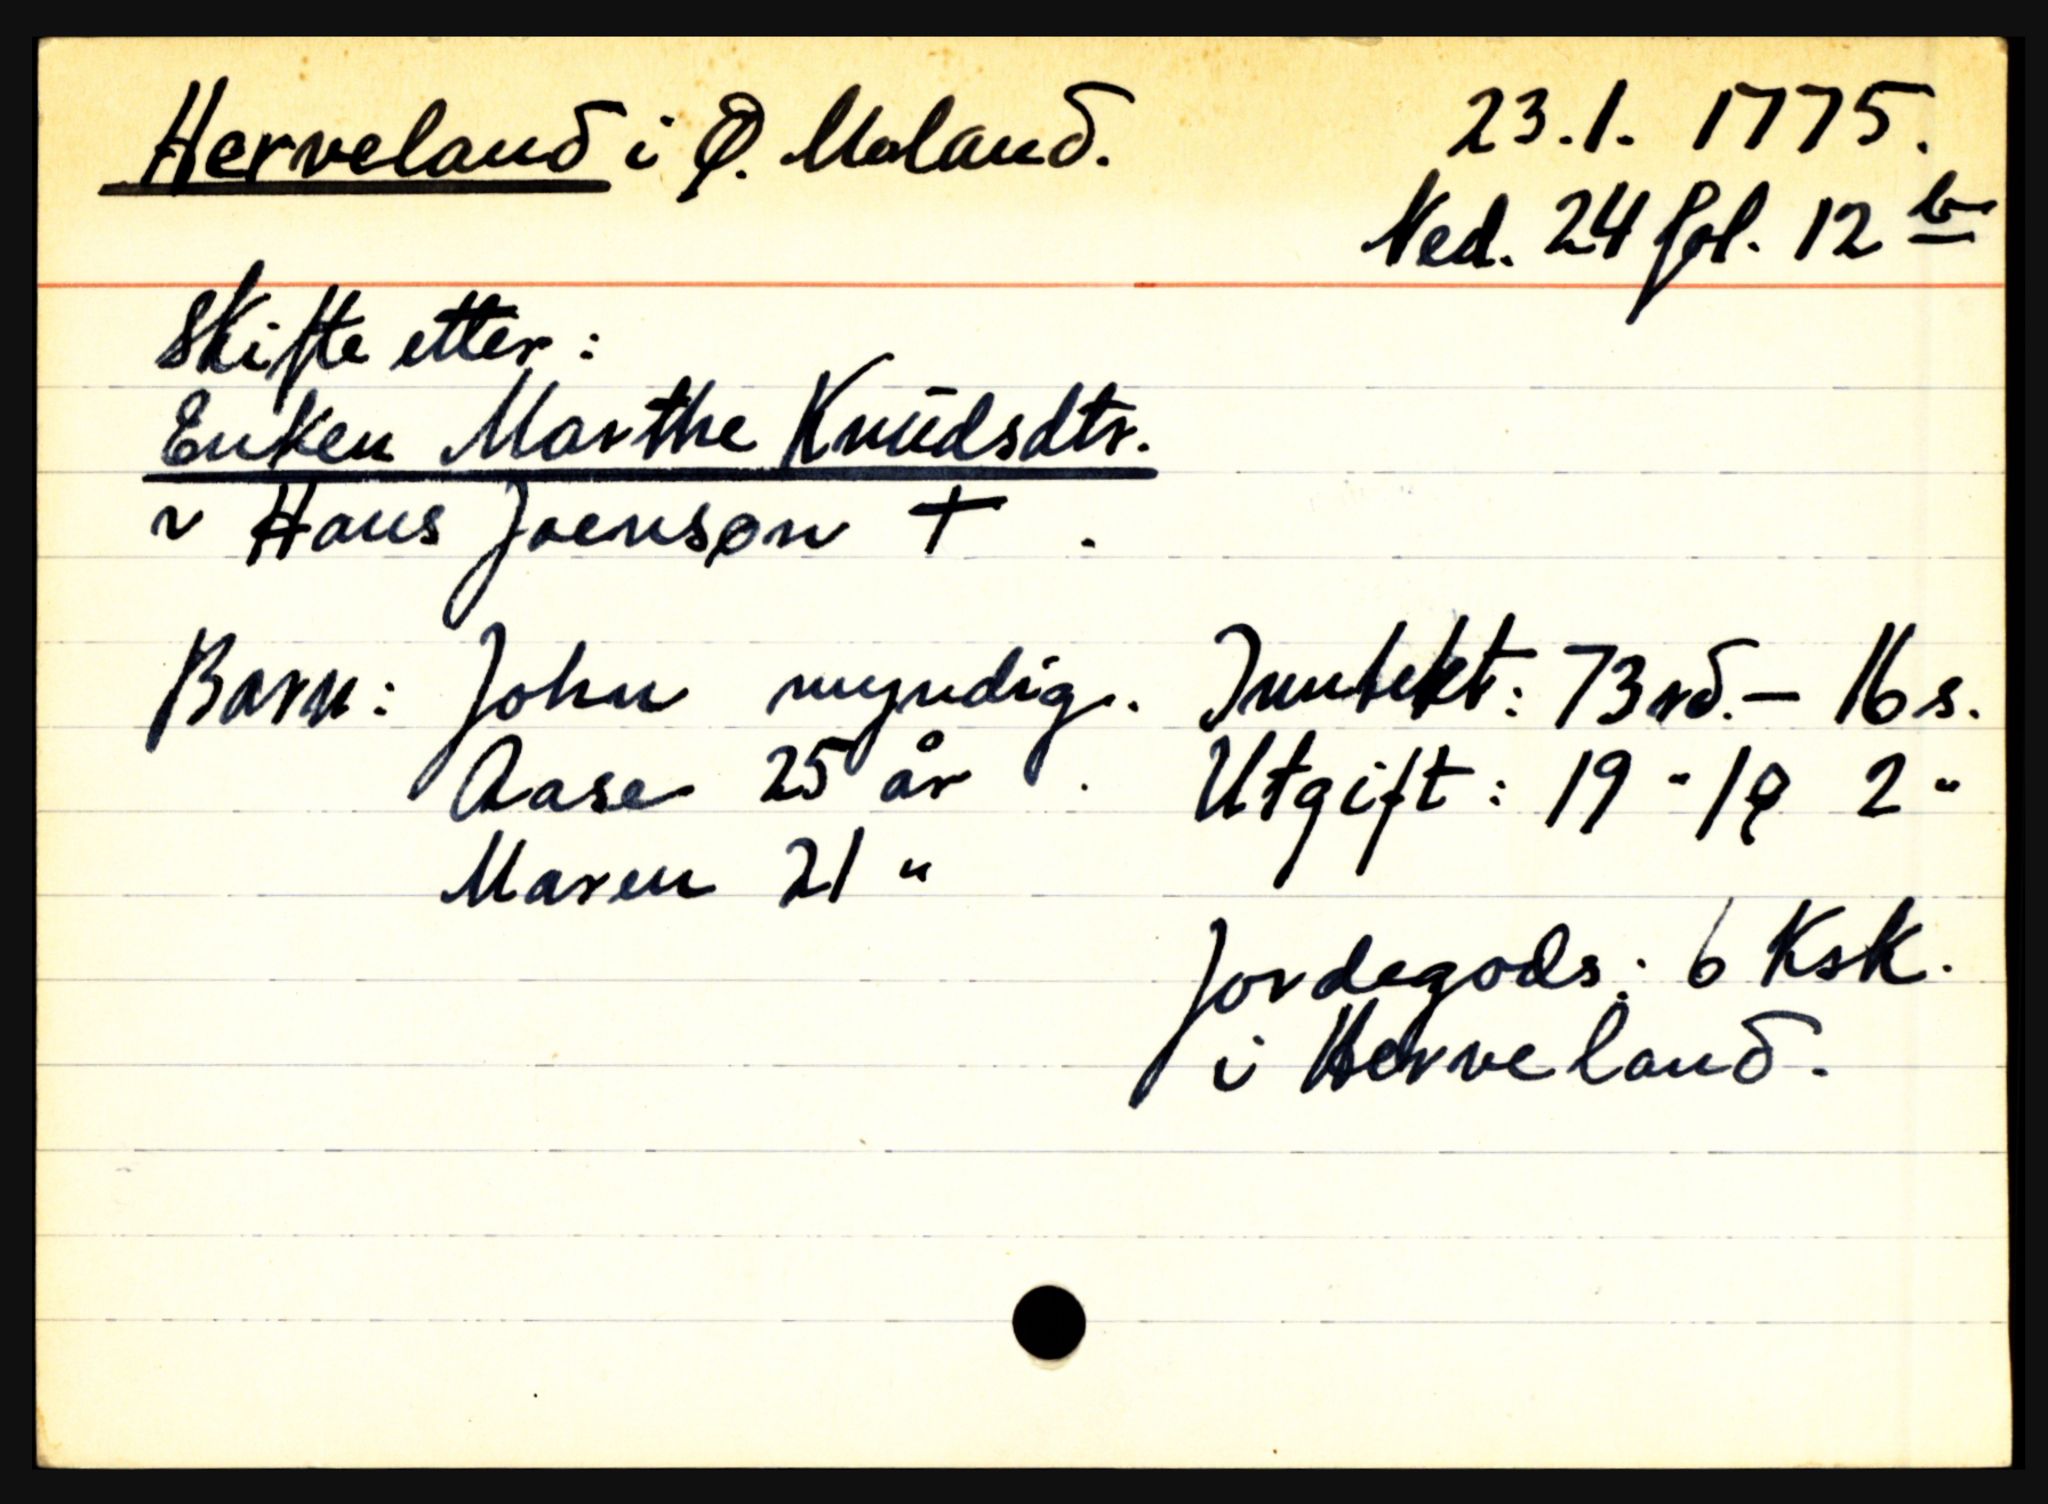 Herveland i Ø. Moland.
23.1. 1775.
Ned. 24 fol. 12 b
Skifte etter:
Enken Marthe Knudsdtr.
v Hans Joenson †.
Barn: John myndig.
Aase 25 år.
Maren 21 "
Inntekt: 73 rd. – 16 s.
Utgift: 19 " 1 ƍ 2 "
Jordegods: 6 Ksk.
i Herveland.